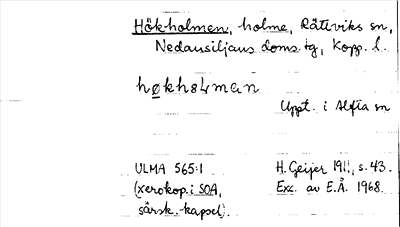 Hökholmen, holme, Rättviks sn,
Nedansiljans doms.tg, Kopp. l.
hökhoLman
Uppt. i Alfta sn
ULMA 565:1
(xerokop. i SOA,
särsk. kapsel).
H. Geijer 1911, s. 43.
Exc. av E.Å. 1968.